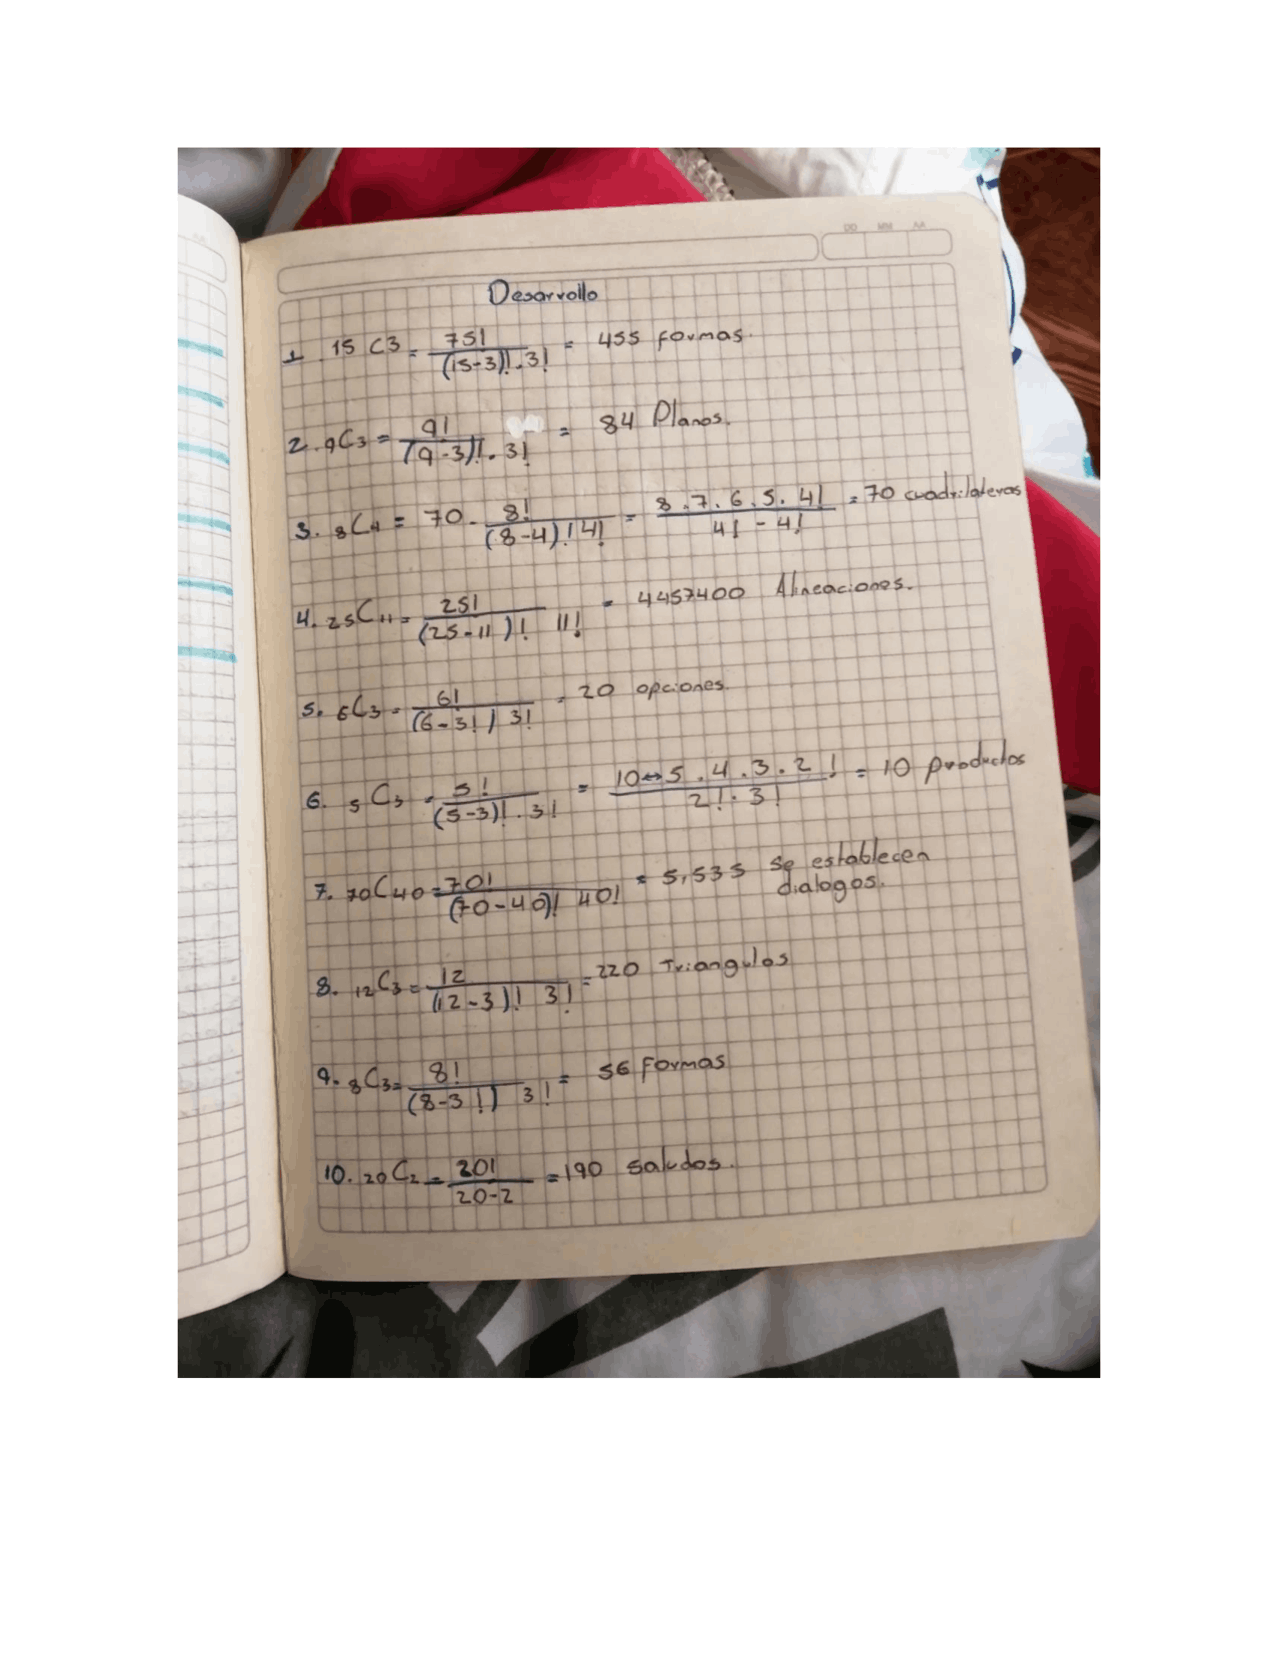 DD MM AA
Desarrollo
1. 15 C3 = 75! / (15-3)! . 3! = 455 formas.
2. 9C3 = 9! / (9-3)! . 3! = 84 Planos.
3. 8C4 = 70 - 8! / (8-4)! 4! = 8.7.6.5.4! / 4! - 4! = 70 cuadrilateros
4. 25C11 = 25! / (25-11)! 11! = 4457400 Alineaciones.
5. 6C3 = 6! / (6-3!) 3! = 20 opciones.
6. 5C3 = 5! / (5-3)! . 3! = 10↔5.4.3.2! / 2! . 3! = 10 productos
7. 70C40 = 70! / (70-40)! 40! = 5,535 se establecen
dialogos.
8. 12C3 = 12 / (12-3)! 3! = 220 Triangulos
9. 8C3 = 8! / (8-3!) 3! = 56 Formas
10. 20C2 = 20! / 20-2 = 190 saludos.